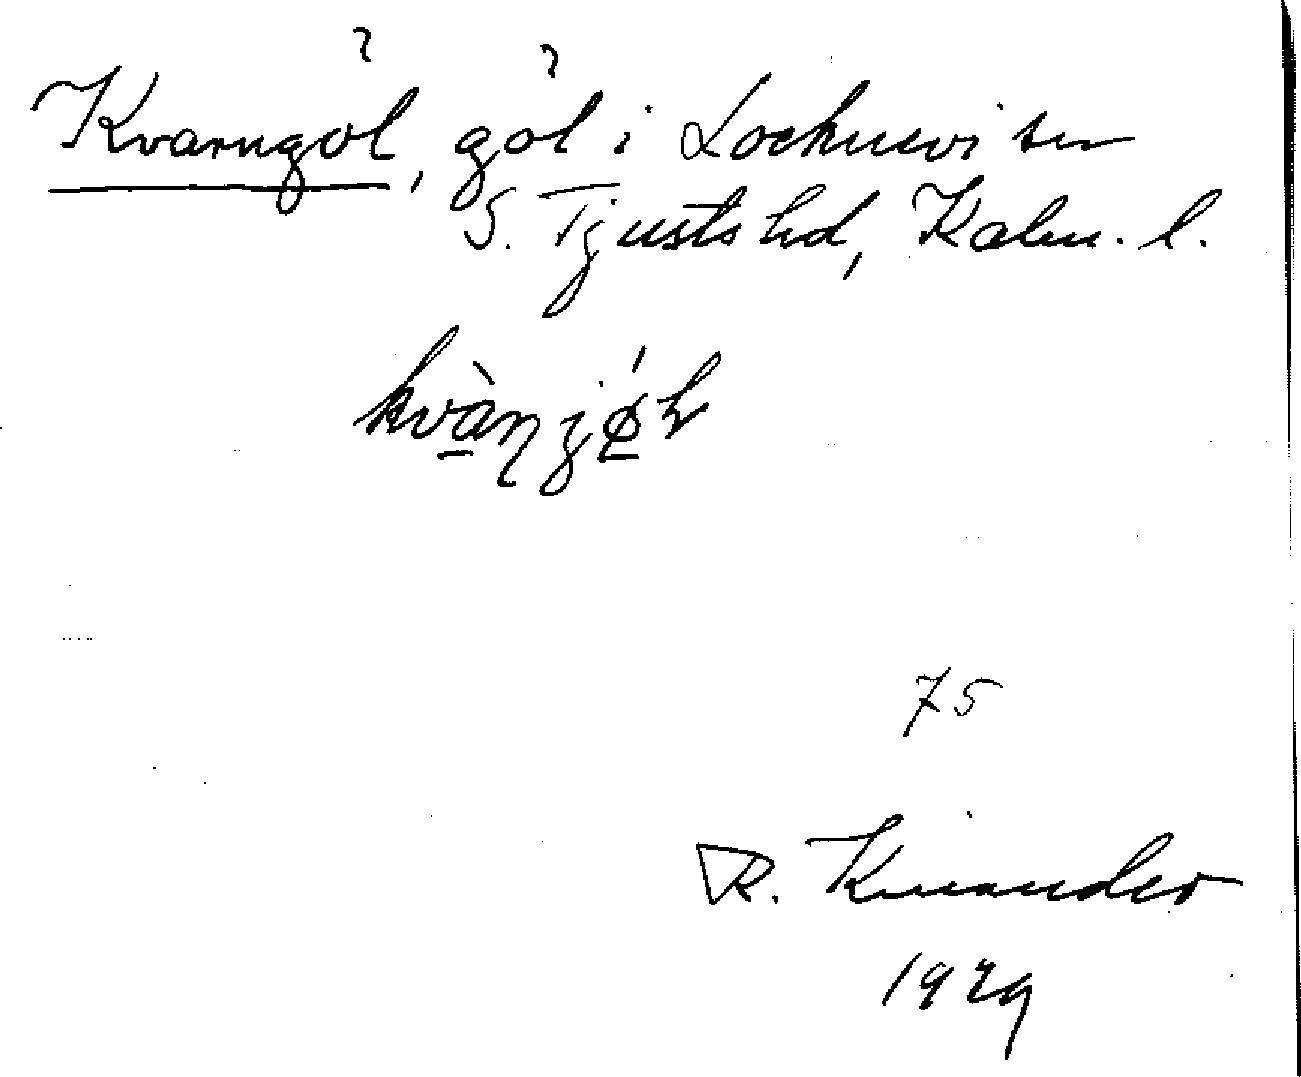 Kvarngöl, göl i Locknevi sn
S. Tjusts hd, Kalm. l.
75
R. Kinander
1929